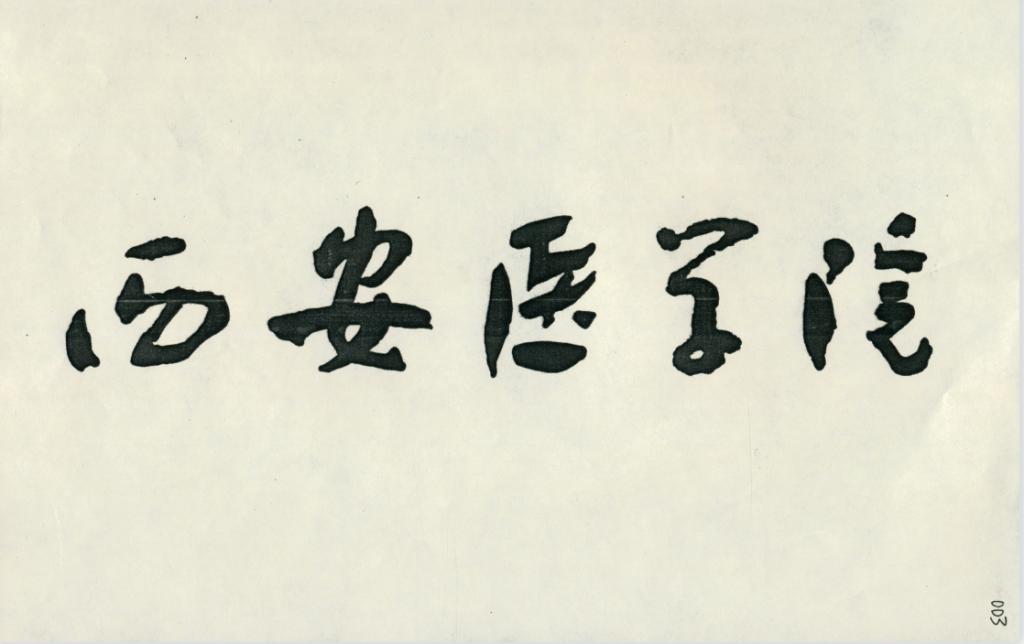 西安医学院
003